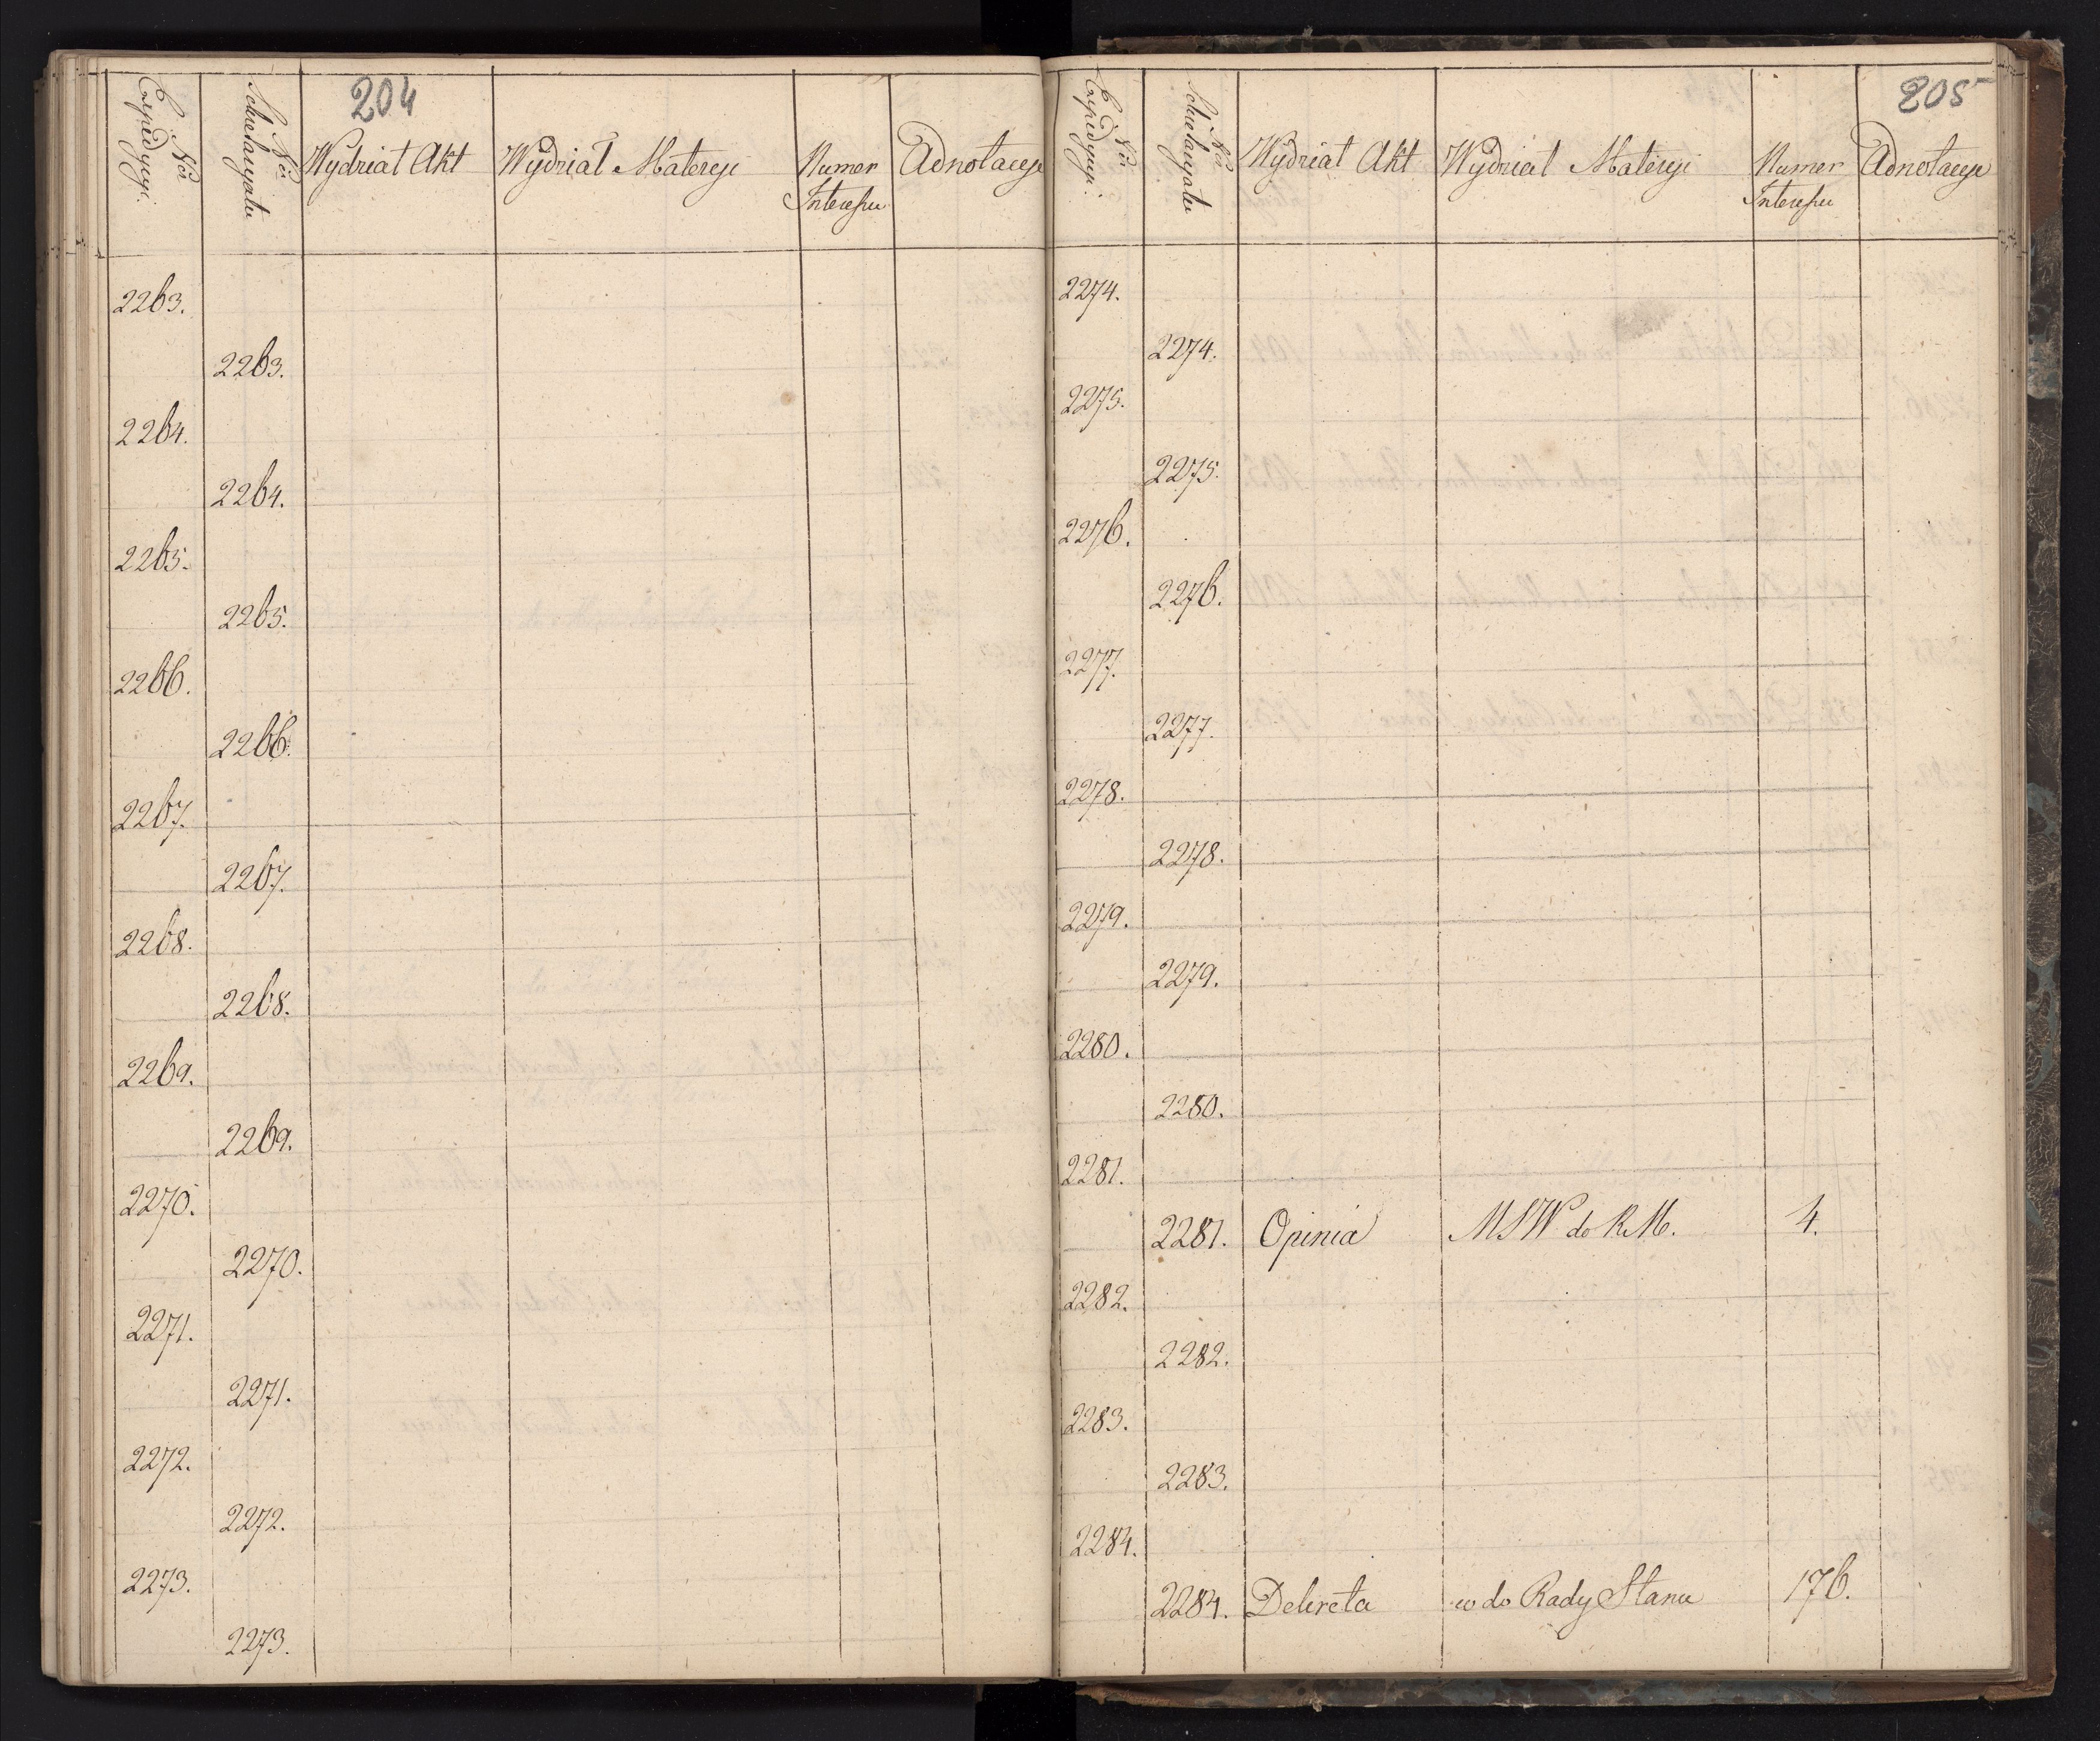 204
Nro Expedycyi.
Nro Sekretaryatu
Wydział Akt
Wydział Materyi
Numer Interessu
Adnotacye
2263.
2263.
2264.
2264.
2265.
2265.
2266.
2266.
2267.
2267.
2268.
2268.
2269.
2269.
2270.
2270.
2271.
2271.
2272.
2272.
2273.
2273.
205
Nro Expedycyi.
Nro Sekretaryatu
Wydział Akt
Wydział Materyi
Numer Interessu
Adnotacye
2274.
2274.
2275.
2275.
2276.
2276.
2277.
2277.
2278.
2278.
2279.
2279.
2280.
2280.
2281.
2281. Opinia MSW do RM. 4.
2282.
2282.
2283.
2283.
2284.
2284. Dekreta co do Rady Stanu 176.